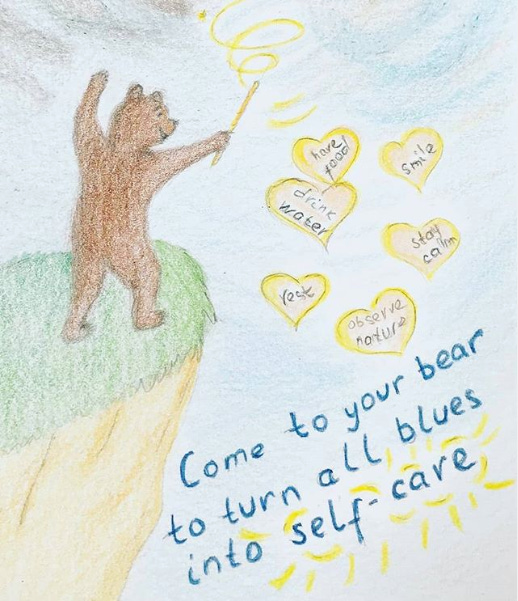 have
food
smile
drink
water
stay
calm
rest
observe
nature
Come to your bear
to turn all blues
into self-care